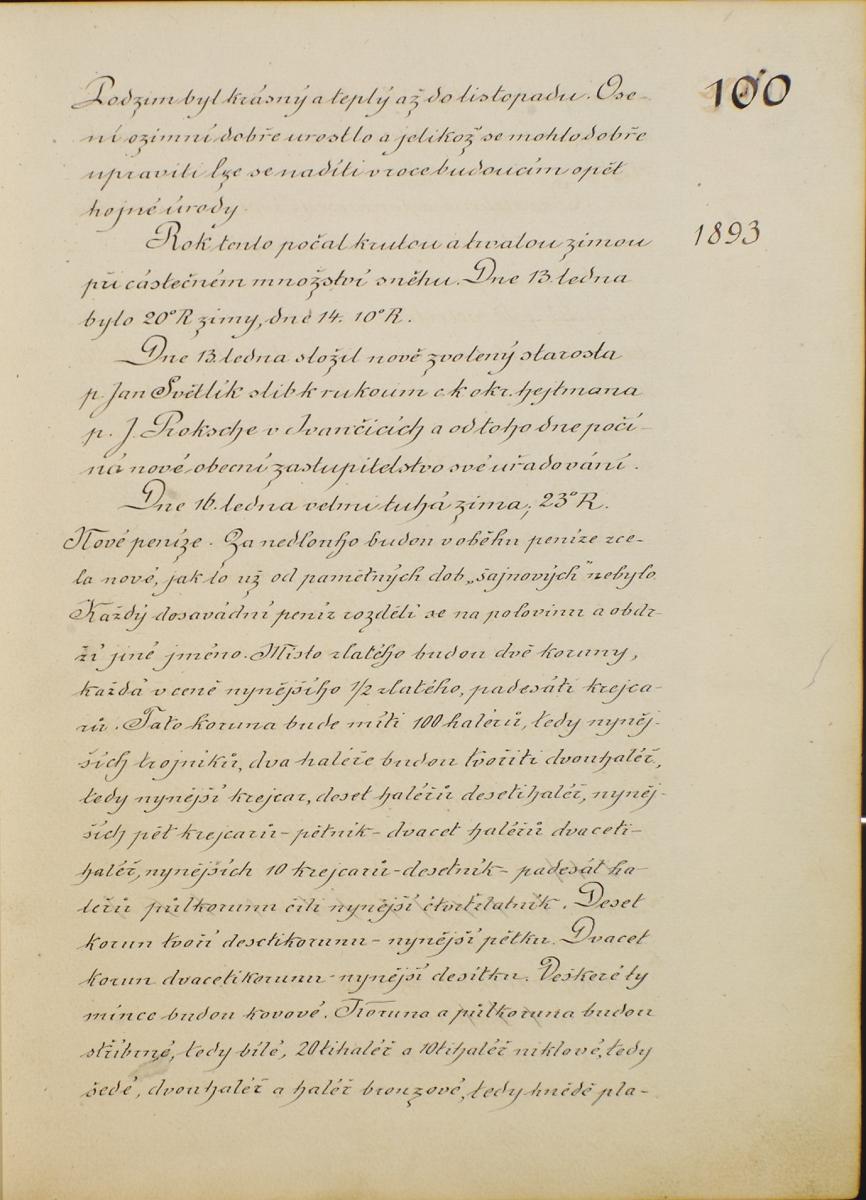 100
Podzim byl krásný a teplý až do listopadu. Ose-
ní ozimní dobře urostlo a jelikož se mohlo dobře
upraviti lze se nadíti v roce budoucím opět
hojné úrody.
1893
Rok tento počal krutou a trvalou zimou
při částečném množství sněhu. Dne 13. ledna
bylo 20°R zimy, dne 14. 10°R.
Dne 13. ledna složil nově zvolený starosta
p. Jan Světlík slib k rukoum c. k. okr. hejtmana
p. J. Proksche v Ivančicích a od toho dne počí-
ná nové obecní zastupitelstvo své uřadování.
Dne 16. ledna velmi tuhá zima; 23°R.
Nové peníze. Za nedlouho budou v oběhu peníze zce-
la nové, jak to už od pamětných dob „šajnových" nebylo.
Každý dosavádní peníz rozdělí se na polovinu a obdr-
ží jiné jméno. Místo zlatého budou dvě koruny,
každá v ceně nynějšího 1/2 zlatého, padesáti krejca-
rů. Tato koruna bude míti 100 halérů, tedy nyněj-
ších trojníků, dva haléře budou tvořiti dvouhaléř,
tedy nynější krejcar, deset haléřů desetihaléř, nyněj-
ších pět krejcarů - pětník - dvacet haléřů dvaceti-
haléř, nynějších 10 krejcarů - desetník - padesát ha-
leřů půlkorunu čili nynější čtvrtzlatník. Deset
korun tvoří desetikorunu - nynější pětku. Dvacet
korun dvacetikorunu - nynější desítku. Veškeré ty
mince budou kovové. Koruna a půlkoruna budou
stříbrné, tedy bílé, 20tihaléř a 10tihaléř niklové, tedy
šedé, dvouhaléř a haléř bronzové, tedy hnědě pla-